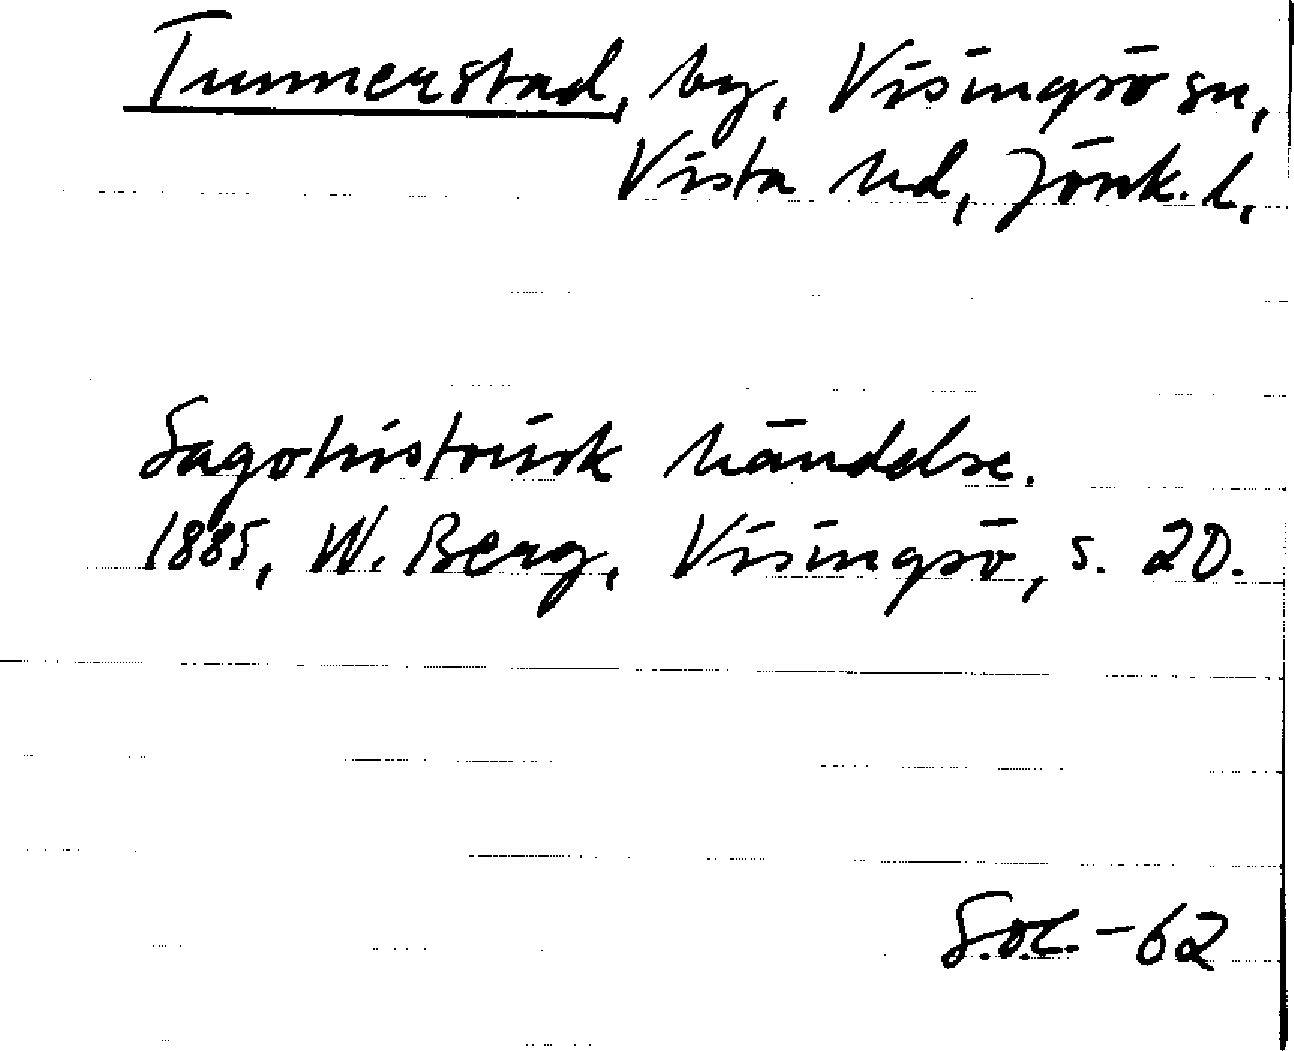 Tunnerstad, by, Visingsö sn,
Vista hd, Jönk. l,
Sagohistorisk händelse.
1885, W. Berg, Visingsö, s. 20.
S.o.L.-62